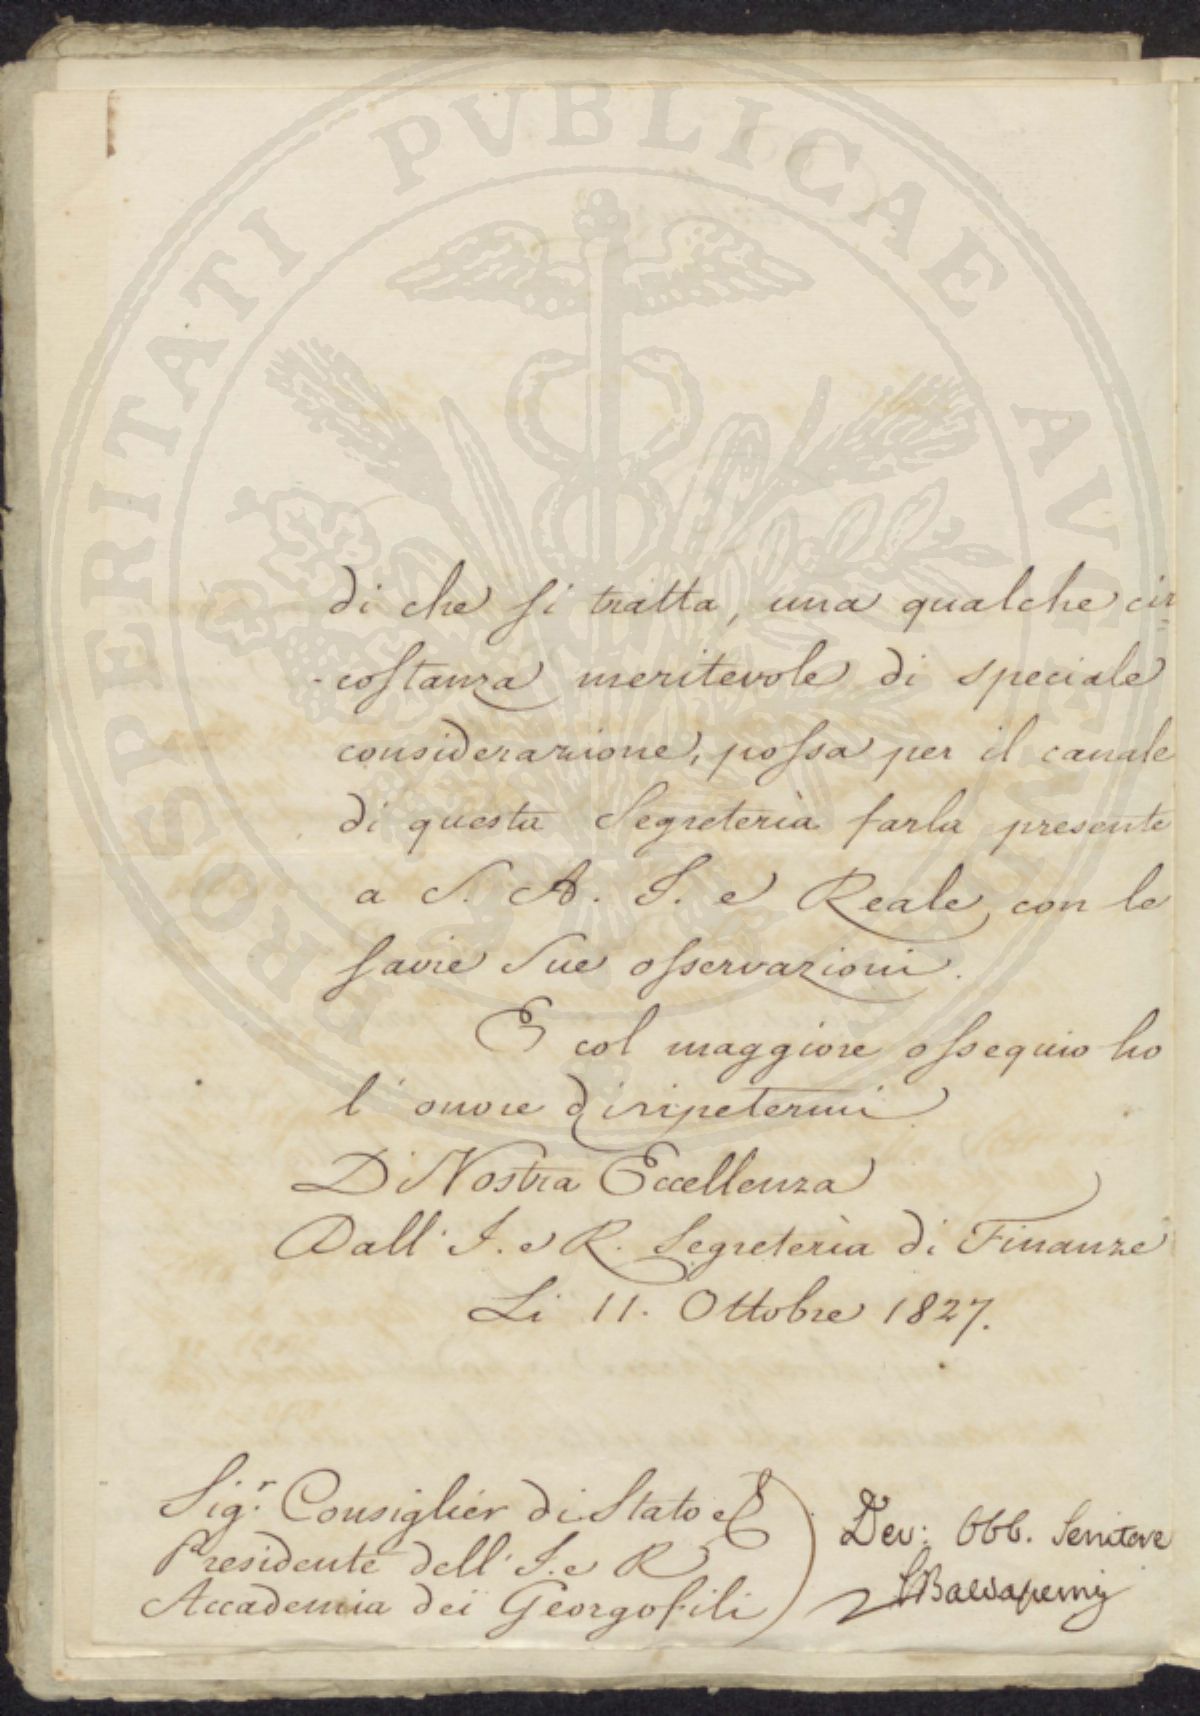 PROSPERITATI PVBLICAE AVGENDAE
di che si tratta, una qualche cir=
costanza meritevole di speciale
considerazione, possa per il canale
di questa Segreteria farla presente
a S. A. I. e Reale, con le
savie Sue osservazioni.
E col maggiore ossequio ho
l'onore di ripetermi
Di Vostra Eccellenza
Dall' I. e R. Segreteria di Finanze
Li 11. Ottobre 1827.
Sigr. Consiglier di Stato e
Presidente dell' I. e R.
Accademia dei Georgofili
Dev: Obb. Servitore